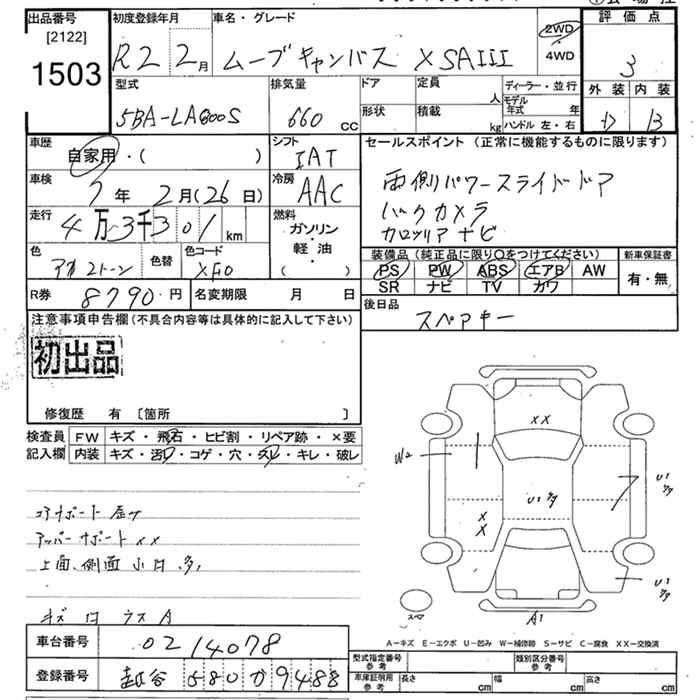 出品番号 [2122] 1503
初度登録年月 R2 2月
車名・グレード ムーブキャンバス XSAIII
2WD・4WD
評価点 3
外装 D 内装 B
型式 5BA-LA800S
排気量 660 cc
ドア 形状
定員 人
積載 kg
ディーラー・並行
モデル年式 年
ハンドル 左・右
車歴 自家用・( )
シフト IAT
車検 7年 2月(26日)
冷房 AAC
走行 4万3千301 km
燃料 ガソリン・軽油・( )
色 アカ2トーン
色替
色コード XF0
R券 8790円
名変期限 月 日
セールスポイント(正常に機能するものに限ります)
両側パワースライドドア
バックカメラ
カロッツリアナビ
装備品(純正品に限り○をつけてください)
PS PW ABS エアB AW
SR ナビ TV カワ
新車保証書 有・無
後日品 スペアキー
注意事項申告欄(不具合内容等は具体的に記入して下さい)
初出品
修復歴 有 [箇所 ]
検査員記入欄
FW キズ・飛石・ヒビ割・リペア跡・×要
内装 キズ・汚レ・コゲ・穴・スレ・キレ・破レ
コアサポート
アッパーサポート XX
上面、側面 小凹 多
キズ 凹 ウス A
XX
W2
U1
XX
U1
U1
スペア
A1
A-キズ E-エクボ U-凹み W-補修跡 S-サビ C-腐食 XX-交換済
車台番号 0214078
登録番号 越谷 580 か 9488
型式指定番号 参考
類別区分番号 参考
車庫証明用 参考
長さ cm 幅 cm 高さ cm